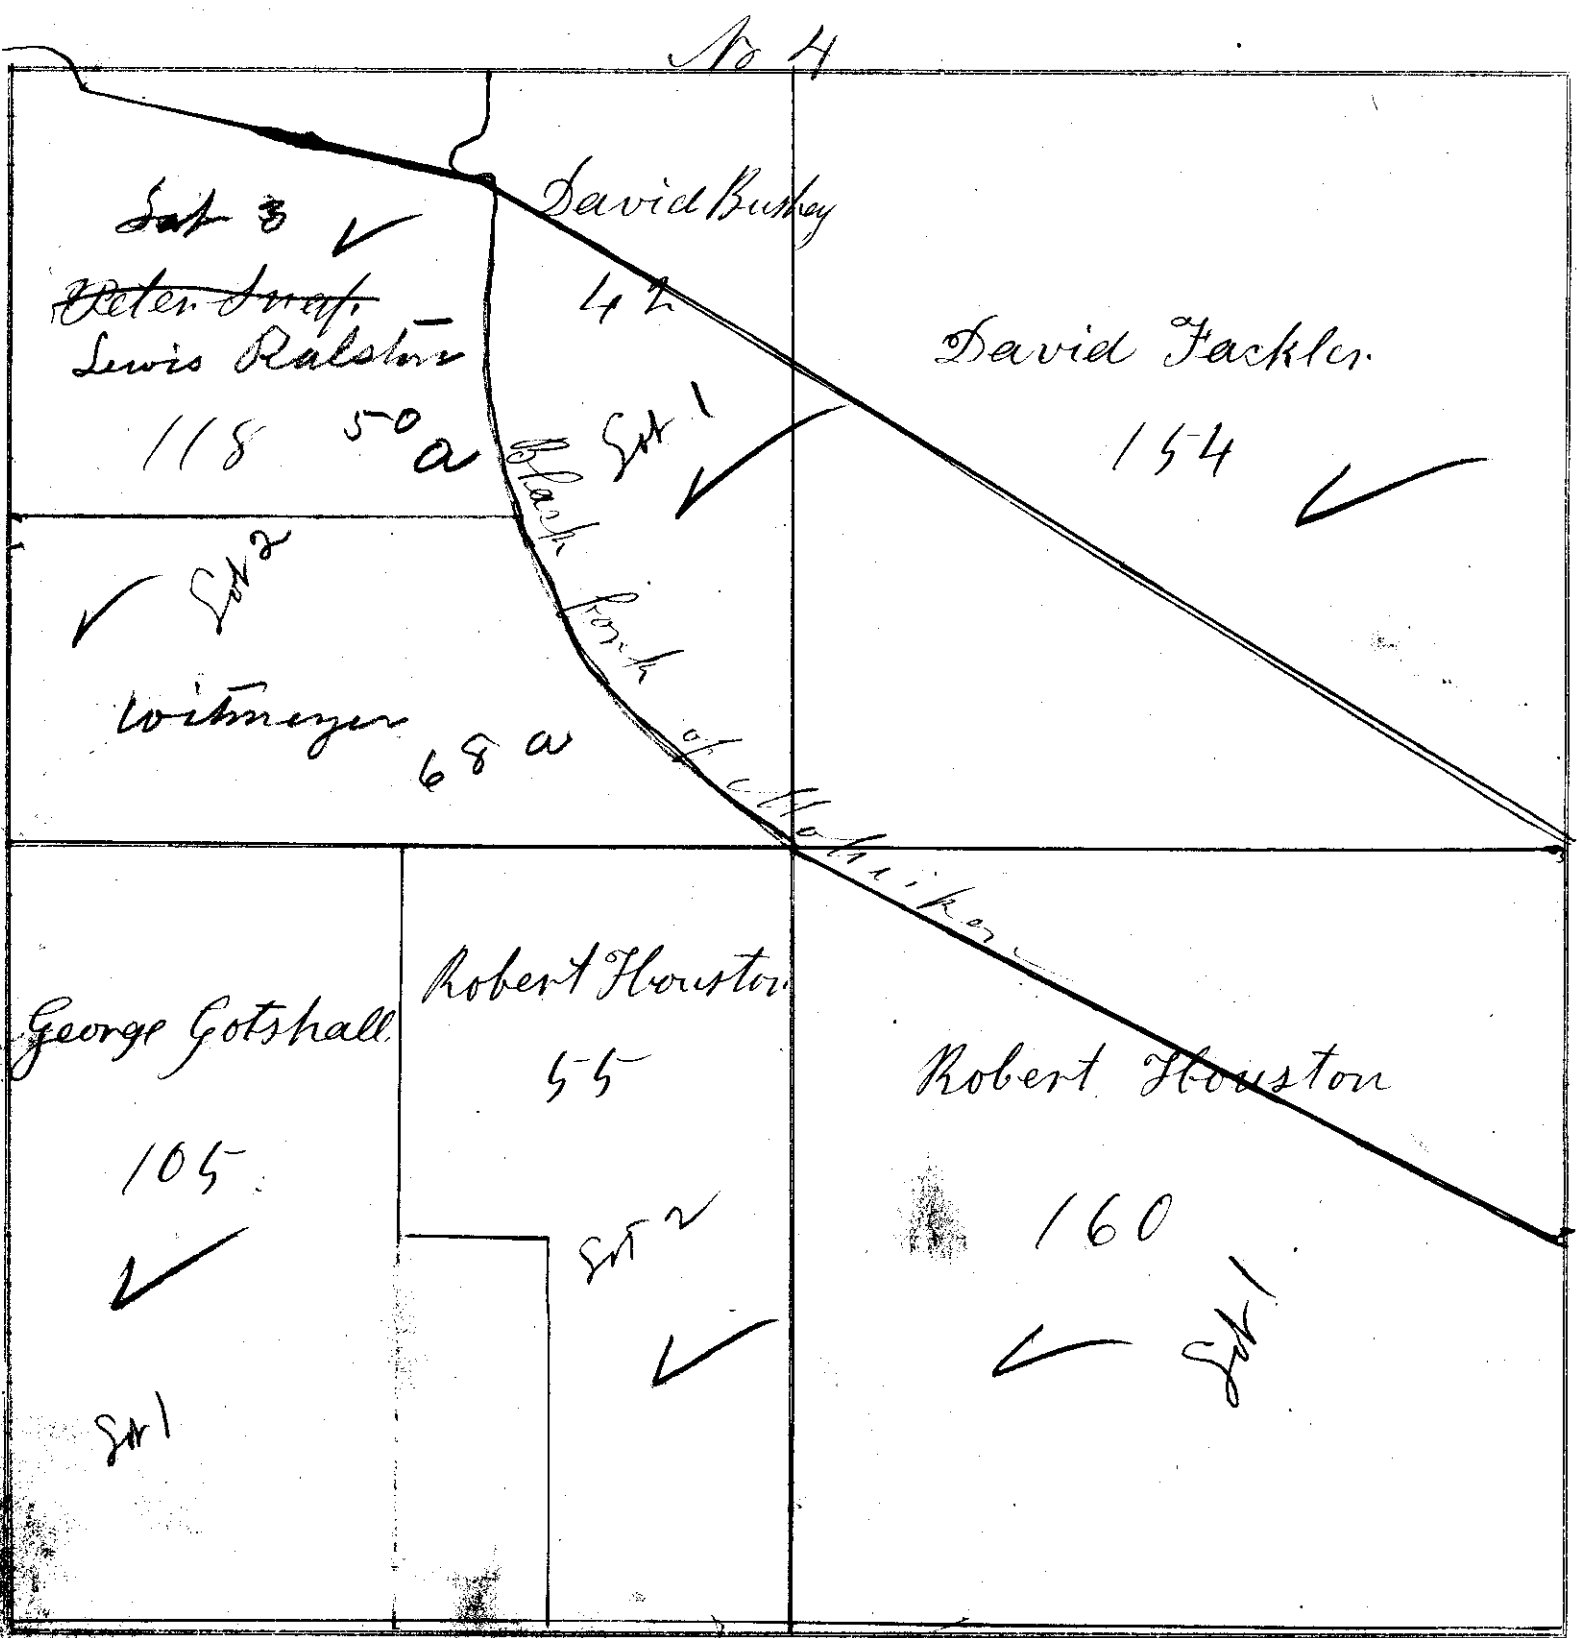 No 4
Lot 3
Peter
Lewis Ralston
118 50 a
David Bushey
42
Lot 1
David Fackler
154
Lot 2
Witmeyer
68 a
Black fork of Mohickon
George Gotshall
105
Lot 1
Robert Houston
55
Lot 2
Robert Houston
160
Lot 1